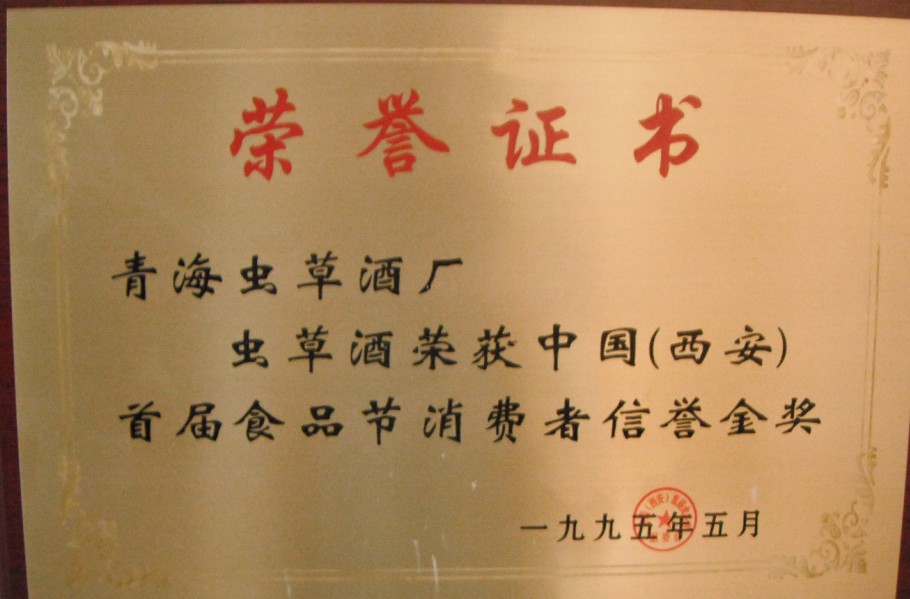 荣誉证书
青海虫草酒厂
虫草酒荣获中国(西安)
首届食品节消费者信誉金奖
一九九五年五月